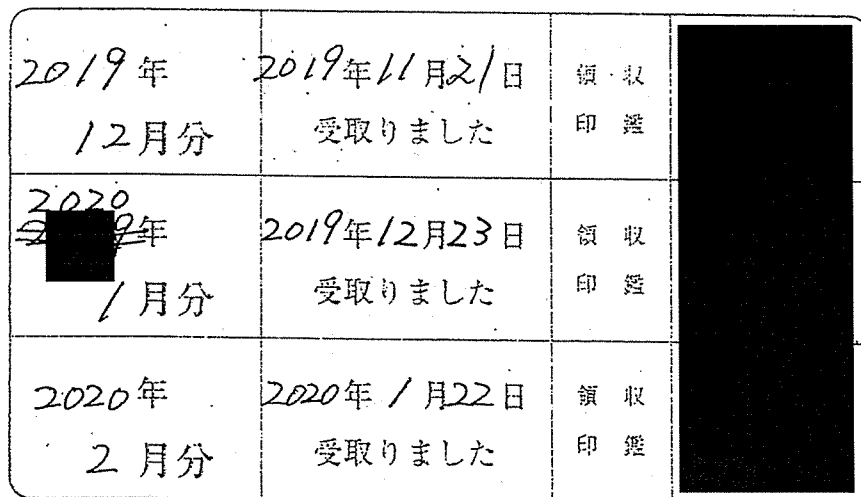 2019年
12月分
2019年11月21日
受取りました
領収
印鑑
2020
年
1月分
2019年12月23日
受取りました
領収
印鑑
2020年
2月分
2020年1月22日
受取りました
領収
印鑑